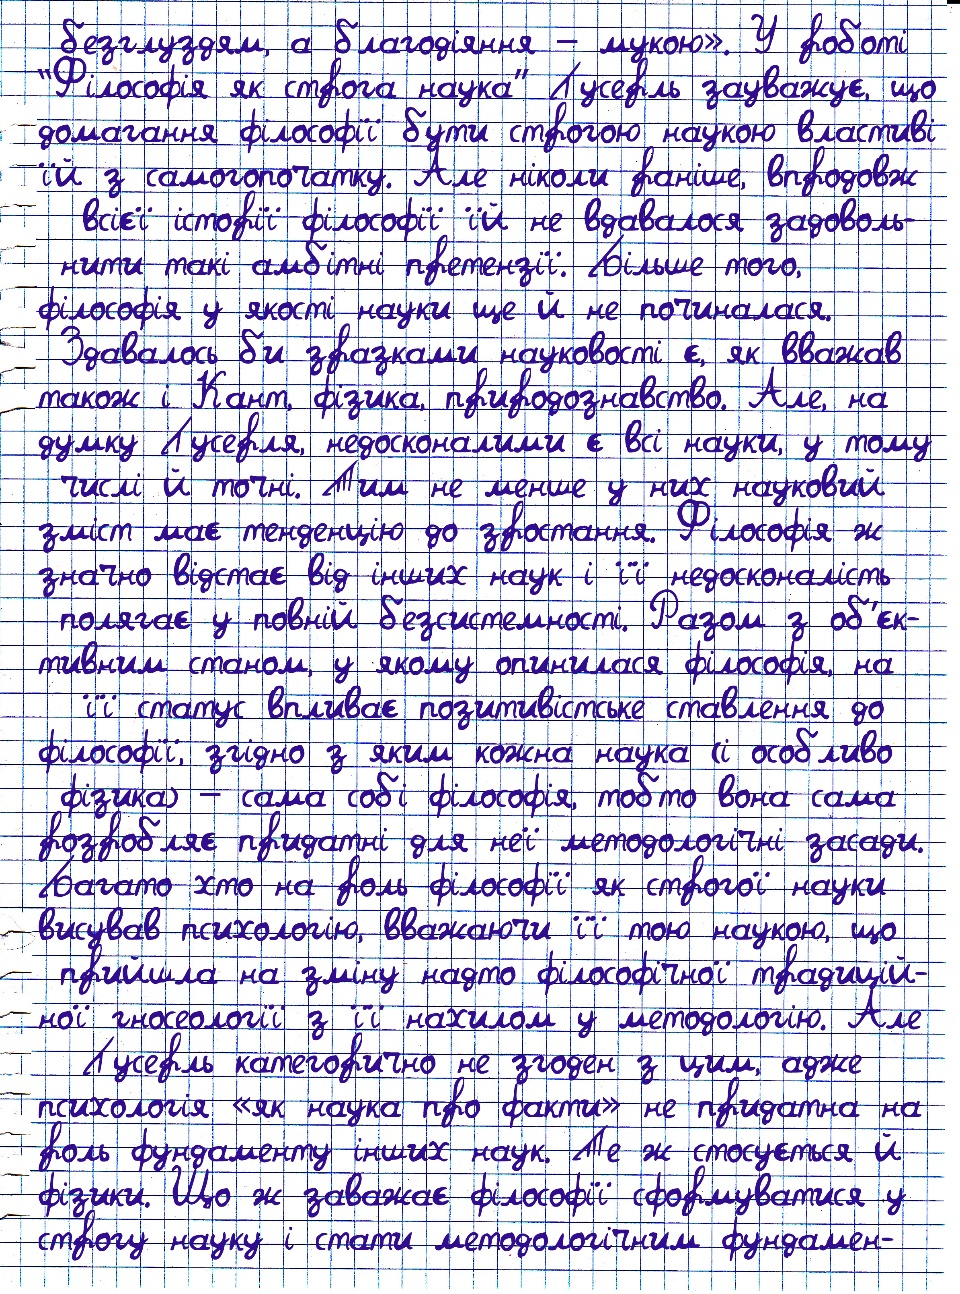 безглуздям, а благодіяння – мукою». У роботі
"Філософія як строга наука" Гусерль зауважує, що
домагання філософії бути строгою наукою властиві
їй з самогопочатку. Але ніколи раніше, впродовж
всієї історії філософії їй не вдавалося задоволь-
нити такі амбітні претензії. Більше того,
філософія у якості науки ще й не починалася.
Здавалось би зразками науковості є, як вважав
також і Кант, фізика, природознавство. Але, на
думку Гусерля, недосконалими є всі науки, у тому
числі й точні. Тим не менше у них науковий
зміст має тенденцію до зростання. Філософія ж
значно відстає від інших наук і її недосконалість
полягає у повній безсистемності. Разом з об'єк-
тивним станом, у якому опинилася філософія, на
її статус впливає позитивістське ставлення до
філософії, згідно з яким кожна наука (і особливо
фізика) – сама собі філософія, тобто вона сама
розробляє придатні для неї методологічні засади.
Багато хто на роль філософії як строгої науки
висував психологію, вважаючи її тою наукою, що
прийшла на зміну надто філософічної традицій-
ної гносеології з її нахилом у методологію. Але
Гусерль категорично не згоден з цим, адже
психологія «як наука про факти» не придатна на
роль фундаменту інших наук. Те ж стосується й
фізики. Що ж заважає філософії сформуватися у
строгу науку і стати методологічним фундамен-